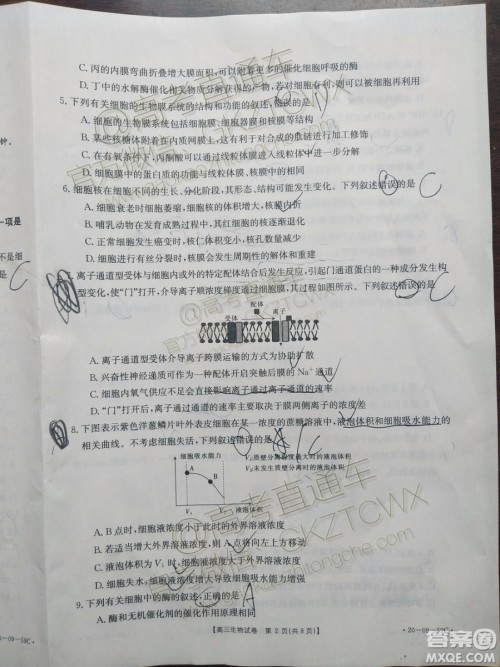 C. 丙的内膜弯曲折叠增大膜面积,可以附着更多的催化细胞呼吸的酶
D. 丁中的水解酶催化相关物质分解后获得的产物,若对细胞有用则可以再利用
5. 下列有关细胞的生物膜系统的结构和功能的叙述,错误的是
A. 细胞的生物膜系统包括细胞膜、细胞器膜和核膜等结构
B. 某些核糖体附着在内质网上,这有利于对合成的肽链进行加工
C. 有氧条件下,丙酮酸可以通过线粒体膜进入线粒体中进一步分解
D. 细胞膜、线粒体膜、内质网膜、核膜上的膜蛋白相同
6. 细胞核在细胞不同的生长、分化阶段,其形态、结构可能发生变化。下列叙述错误的是 C
A. 细胞衰老时细胞萎缩,细胞核的体积增大,核膜内折
B. 哺乳动物在发育成熟过程中,其红细胞的核逐渐退化
C. 细胞代谢旺盛时,核仁体积变小,核孔数量减少
D. 细胞有丝分裂时,核膜会发生周期性的解体和重建
离子通道型受体与细胞内或外的特定配体结合后发生反应,引起门通道蛋白的一种成分发生构
型变化,使“门”打开,介导离子顺浓度梯度通过细胞膜,其过程如图所示。下列叙述错误的是 C
配体
受体 离子
A. 离子通道型受体介导离子跨膜运输的方式为协助扩散
B. 兴奋性神经递质可与突触后膜上的受体结合开启膜的Na⁺通道
C. 细胞内氧气供应不足会直接影响离子通过离子通道的速率
D. “门”打开后,离子通过通道的速率主要取决于膜两侧离子的浓度差
8. 下图表示紫色洋葱鳞片叶外表皮细胞在某一浓度的蔗糖溶液中,液泡体积和细胞吸水能力的
相关曲线。不考虑细胞失活,下列叙述错误的是
细胞吸水能力
V₁质壁分离程度最大时的液泡体积
V₂未发生质壁分离时的液泡体积
A
B
V₁ V₂ 液泡体积
A. B点时,细胞液浓度小于此时的外界溶液浓度
B. 若适当增大外界溶液浓度,则A点将向左上方移动
C. 液泡体积为V₁时,细胞液浓度大于外界溶液浓度
D. 细胞失水,细胞液浓度增大导致细胞吸水能力增强
9. 下列有关细胞中的酶的叙述,正确的是 A
A. 酶和无机催化剂的催化作用原理相同
【高三生物试卷 第2页(共8页)】
·20-09-59C·